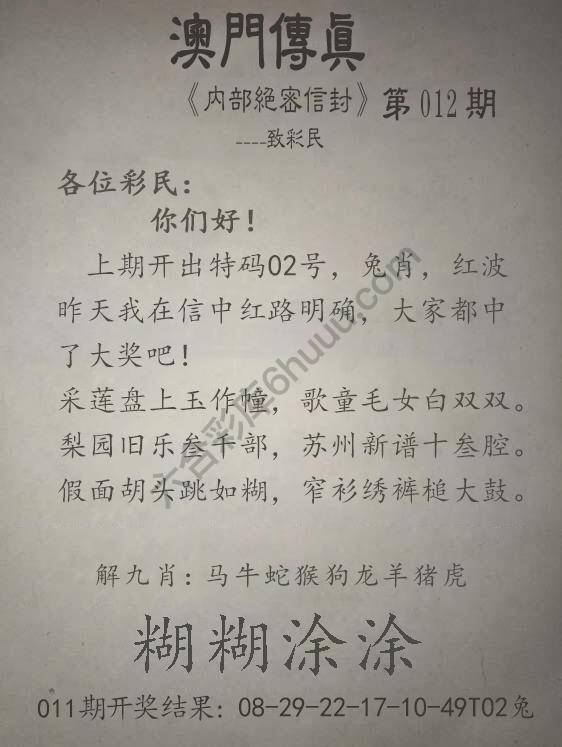 澳門傳眞
《内部絕密信封》第012期
----致彩民
各位彩民：
你们好！
上期开出特码02号，兔肖，红波
昨天我在信中红路明确，大家都中
了大奖吧！
采莲盘上玉作幢，歌童毛女白双双。
梨园旧乐叁千部，苏州新谱十叁腔。
假面胡头跳如糊，窄衫绣裤槌大鼓。
解九肖：马牛蛇猴狗龙羊猪虎
糊糊涂涂
011期开奖结果：08-29-22-17-10-49T02兔
六合彩库6huuu.com